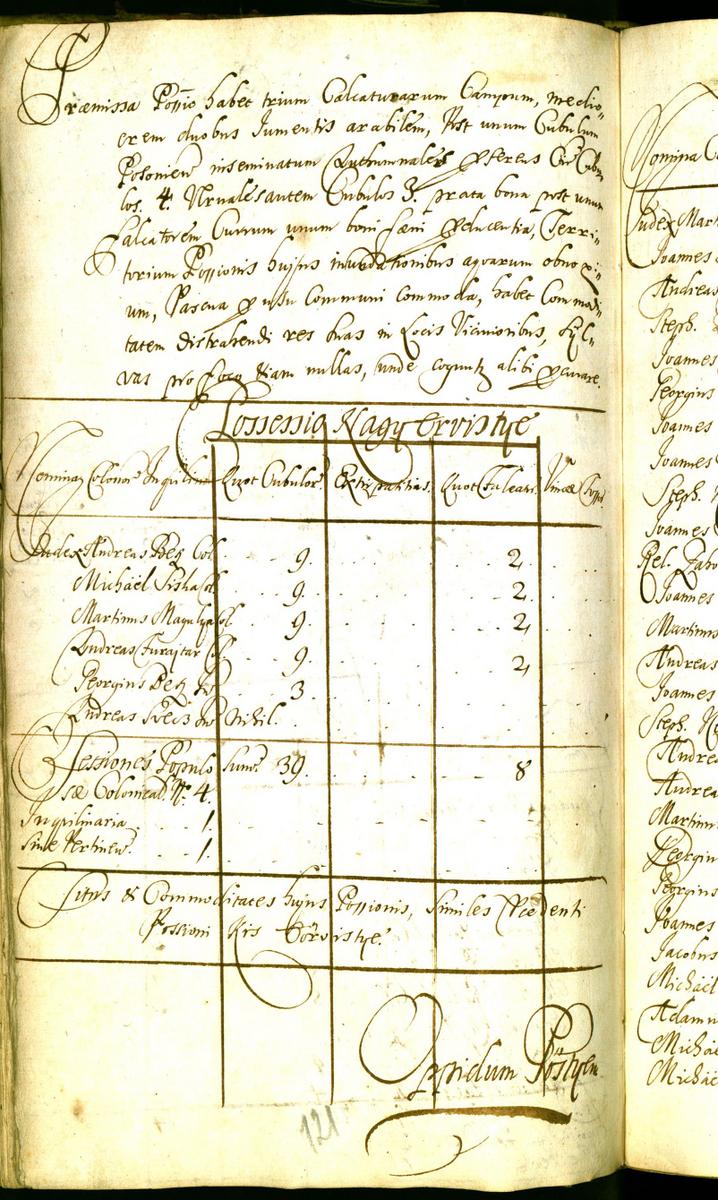 Præmissa Possio habet trium Calcaturarum Campum, medio„
crem duobus Jumentis arabilem, Post unum Cubulum
Posonien inseminatum Authumnales proferens Cubu
los. 4. Vernales autem Cubulos 3. prata bona post unum
Falcatorem Currum unum boni fæni producentia, Terri„
torium Possionis hujus inundationibus aquarum obnoxi„
um, Pascua pro usu Communi commoda, habet Commodi
tatem distrahendi res suas in Locis Vicinioribus, Syl„
vas pro foco etiam nullas, unde coguntur alibi procurare.
Possessio Nagy Ervistye
Nomina Colonor Inquilin Quot Cubulor Extirpatitias. Quot Falcator Vineæ
Judex Andreas Beg Col. 9. 2.
Michaël Col. 9. 2.
Martinus Magulya Col. 9. 2.
Andreas Furajtar Col. 9. 2.
Georgius Beg Inq 3.
Andreas Inq Nihil.
Sessiones Populo Sum 39. 8
sæ Colonical. No. 4.
Inquilinaria . . 1.
Sine Pertinen . . 1.
Situs & Commoditates hujus Possionis, similes Præcedenti
Possioni Kis Eörvistye.
Oppidum Pöstyen
121
Nomina C
Judex Mart
Joannes
Andreas
Steph.
Joannes
Georgius
Joannes
Joannes
Steph.
Joannes
Rel.
Joannes
Martinus
Andreas
Joannes
Steph.
Andre
Andrea
Martin
Georgiu
Georgius
Joannes
Jacobus
Michael
Adamu
Michae
Michae